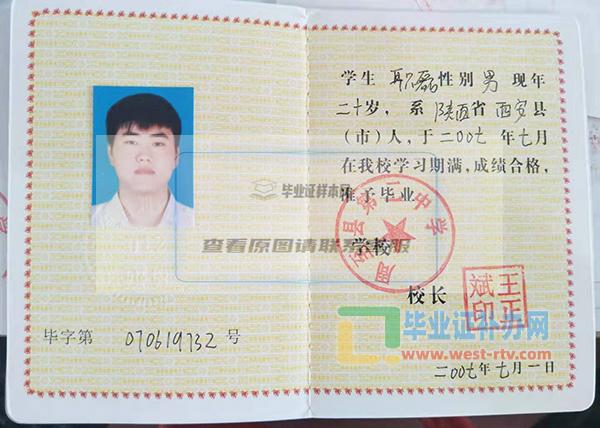 毕业证样本网
查看原图请联系客服
毕字第 070619732 号
学生 耿磊 性别 男 现年
二十岁，系 陕西 省 西安 县
（市）人，于二00七 年 七 月
在我校学习期满，成绩合格，
准予毕业
周至县第二中学
学校
校长
王正斌印
毕业证补办网
www.west-rtv.com
二00七年七月一日